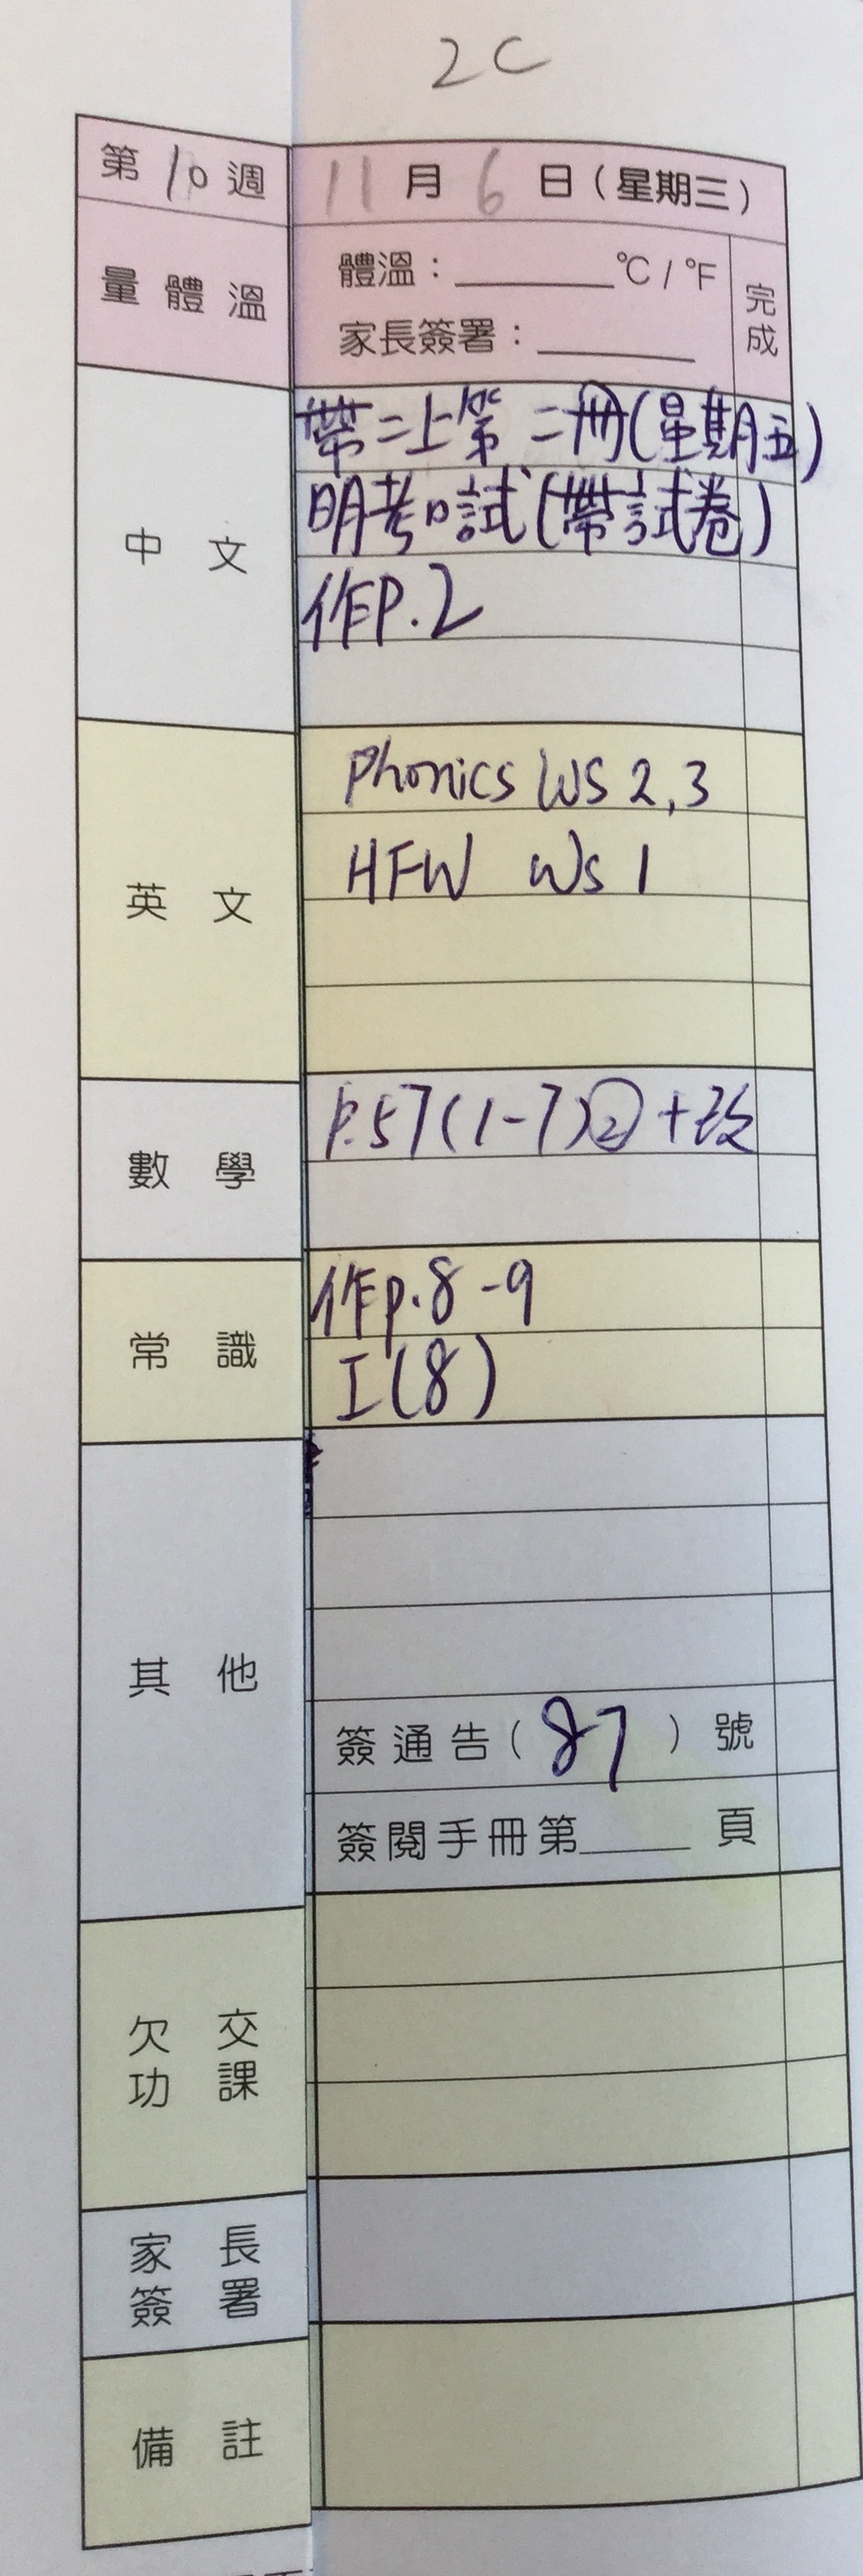 2C
第 10 週 11 月 6 日 ( 星期三 )
量 體 溫 體溫 : ______ °C / °F 完成
家長簽署 : ______
中 文 帶二上第二冊(星期五)
明考口試(帶試卷)
作P.2
英 文 Phonics WS 2,3
HFW WS 1
數 學 P.57(1-7)② +改
常 識 作p.8-9
I(8)
其 他
簽 通 告 ( 87 ) 號
簽閱手冊第______ 頁
欠 交
功 課
家 長
簽 署
備 註